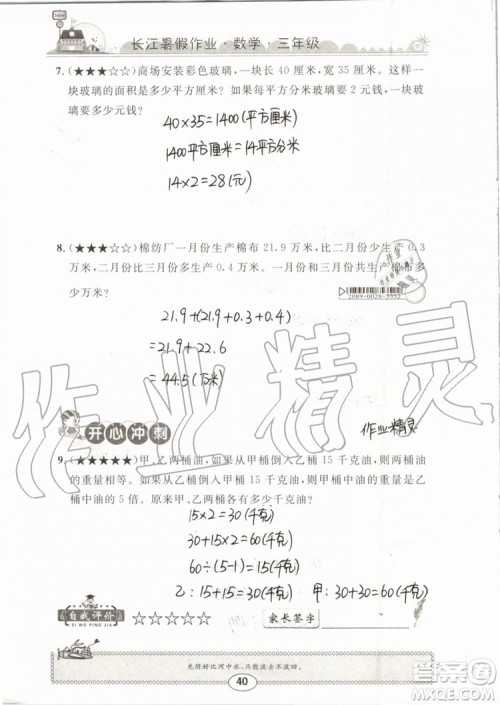 长江暑假作业·数学·三年级
7. (★★★☆☆) 商场安装彩色玻璃,一块长 40 厘米,宽 35 厘米。这样一
块玻璃的面积是多少平方厘米? 如果每平方分米玻璃要 2 元钱,一块玻
璃要多少元钱?
40×35=1400(平方厘米)
1400平方厘米=14平方分米
14×2=28(元)
8. (★★★☆☆) 棉纺厂一月份生产棉布 21.9 万米,比二月份少生产 0.3
万米,二月份比三月份少生产 0.4 万米。一月份和三月份共生产棉布多
少万米?
2089-0028-5552
21.9+(21.9+0.3+0.4)
=21.9+22.6
=44.5(万米)
作业精灵
作业精灵
开心冲刺
9. (★★★★★) 甲、乙两桶油,如果从甲桶倒入乙桶 15 千克油,两桶油的
重量相等。如果从乙桶倒入甲桶 15 千克油,则甲桶中油的重量是乙
桶中油的 5 倍。原来甲、乙两桶各有多少千克油?
15×2=30(千克)
30+15×2=60(千克)
60÷(5-1)=15(千克)
乙:15+15=30(千克) 甲:30+30=60(千克)
自我评价
ZI WO PING JIA
☆☆☆☆☆
家长签字
光阴好比河中水,只能流去不流回。
40
答案圈
MXQE.COM